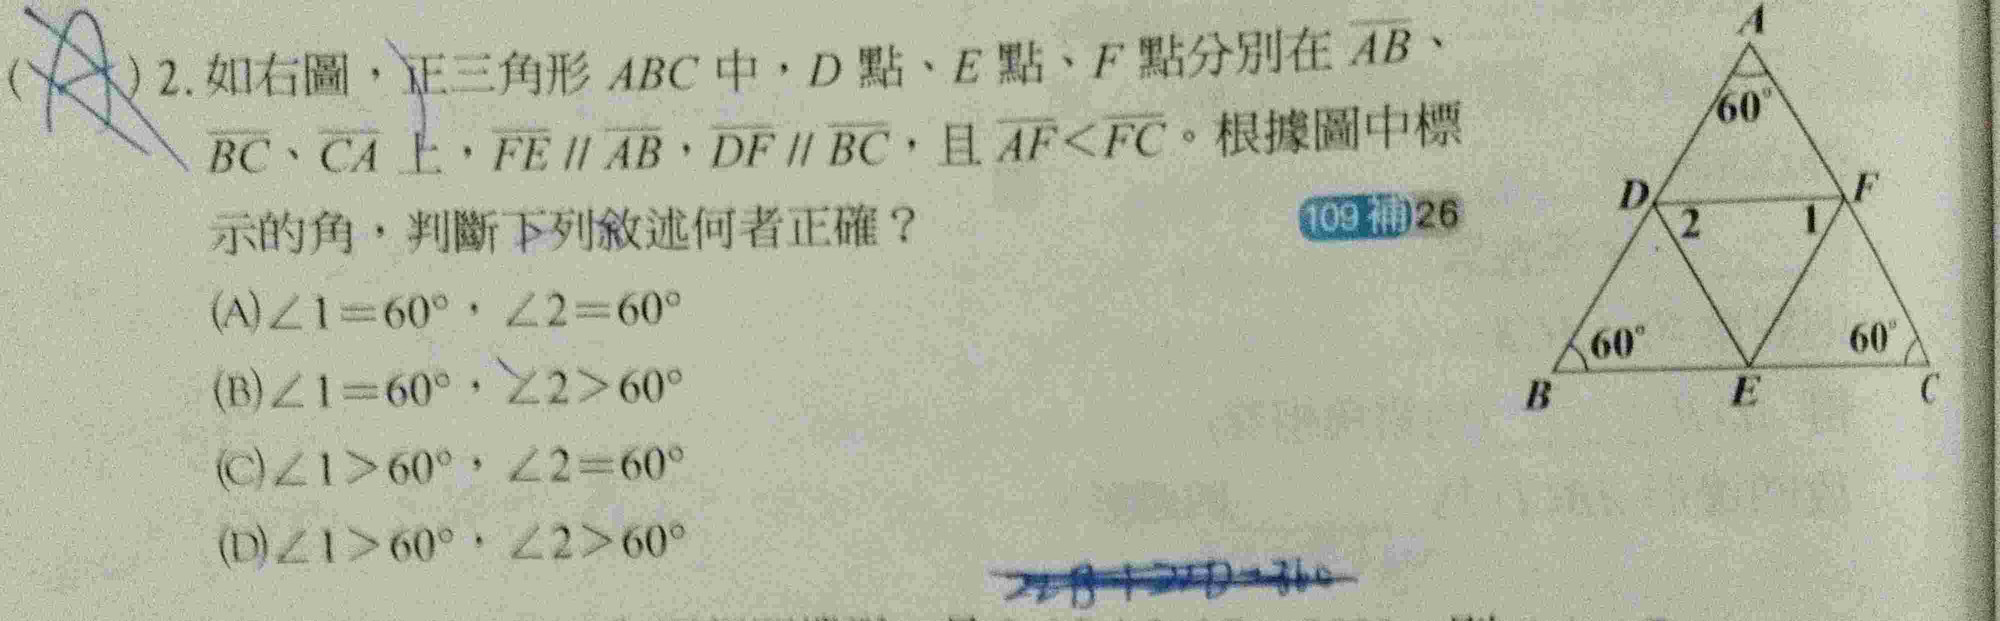 (A) 2. 如右圖，正三角形 ABC 中，D 點、E 點、F 點分別在 AB、
BC、CA 上，FE // AB，DF // BC，且 AF<FC。根據圖中標
示的角，判斷下列敘述何者正確？
109 補 26
(A)∠1=60°，∠2=60°
(B)∠1=60°，∠2>60°
(C)∠1>60°，∠2=60°
(D)∠1>60°，∠2>60°
A
60°
D
F
2
1
60°
60°
B
E
C